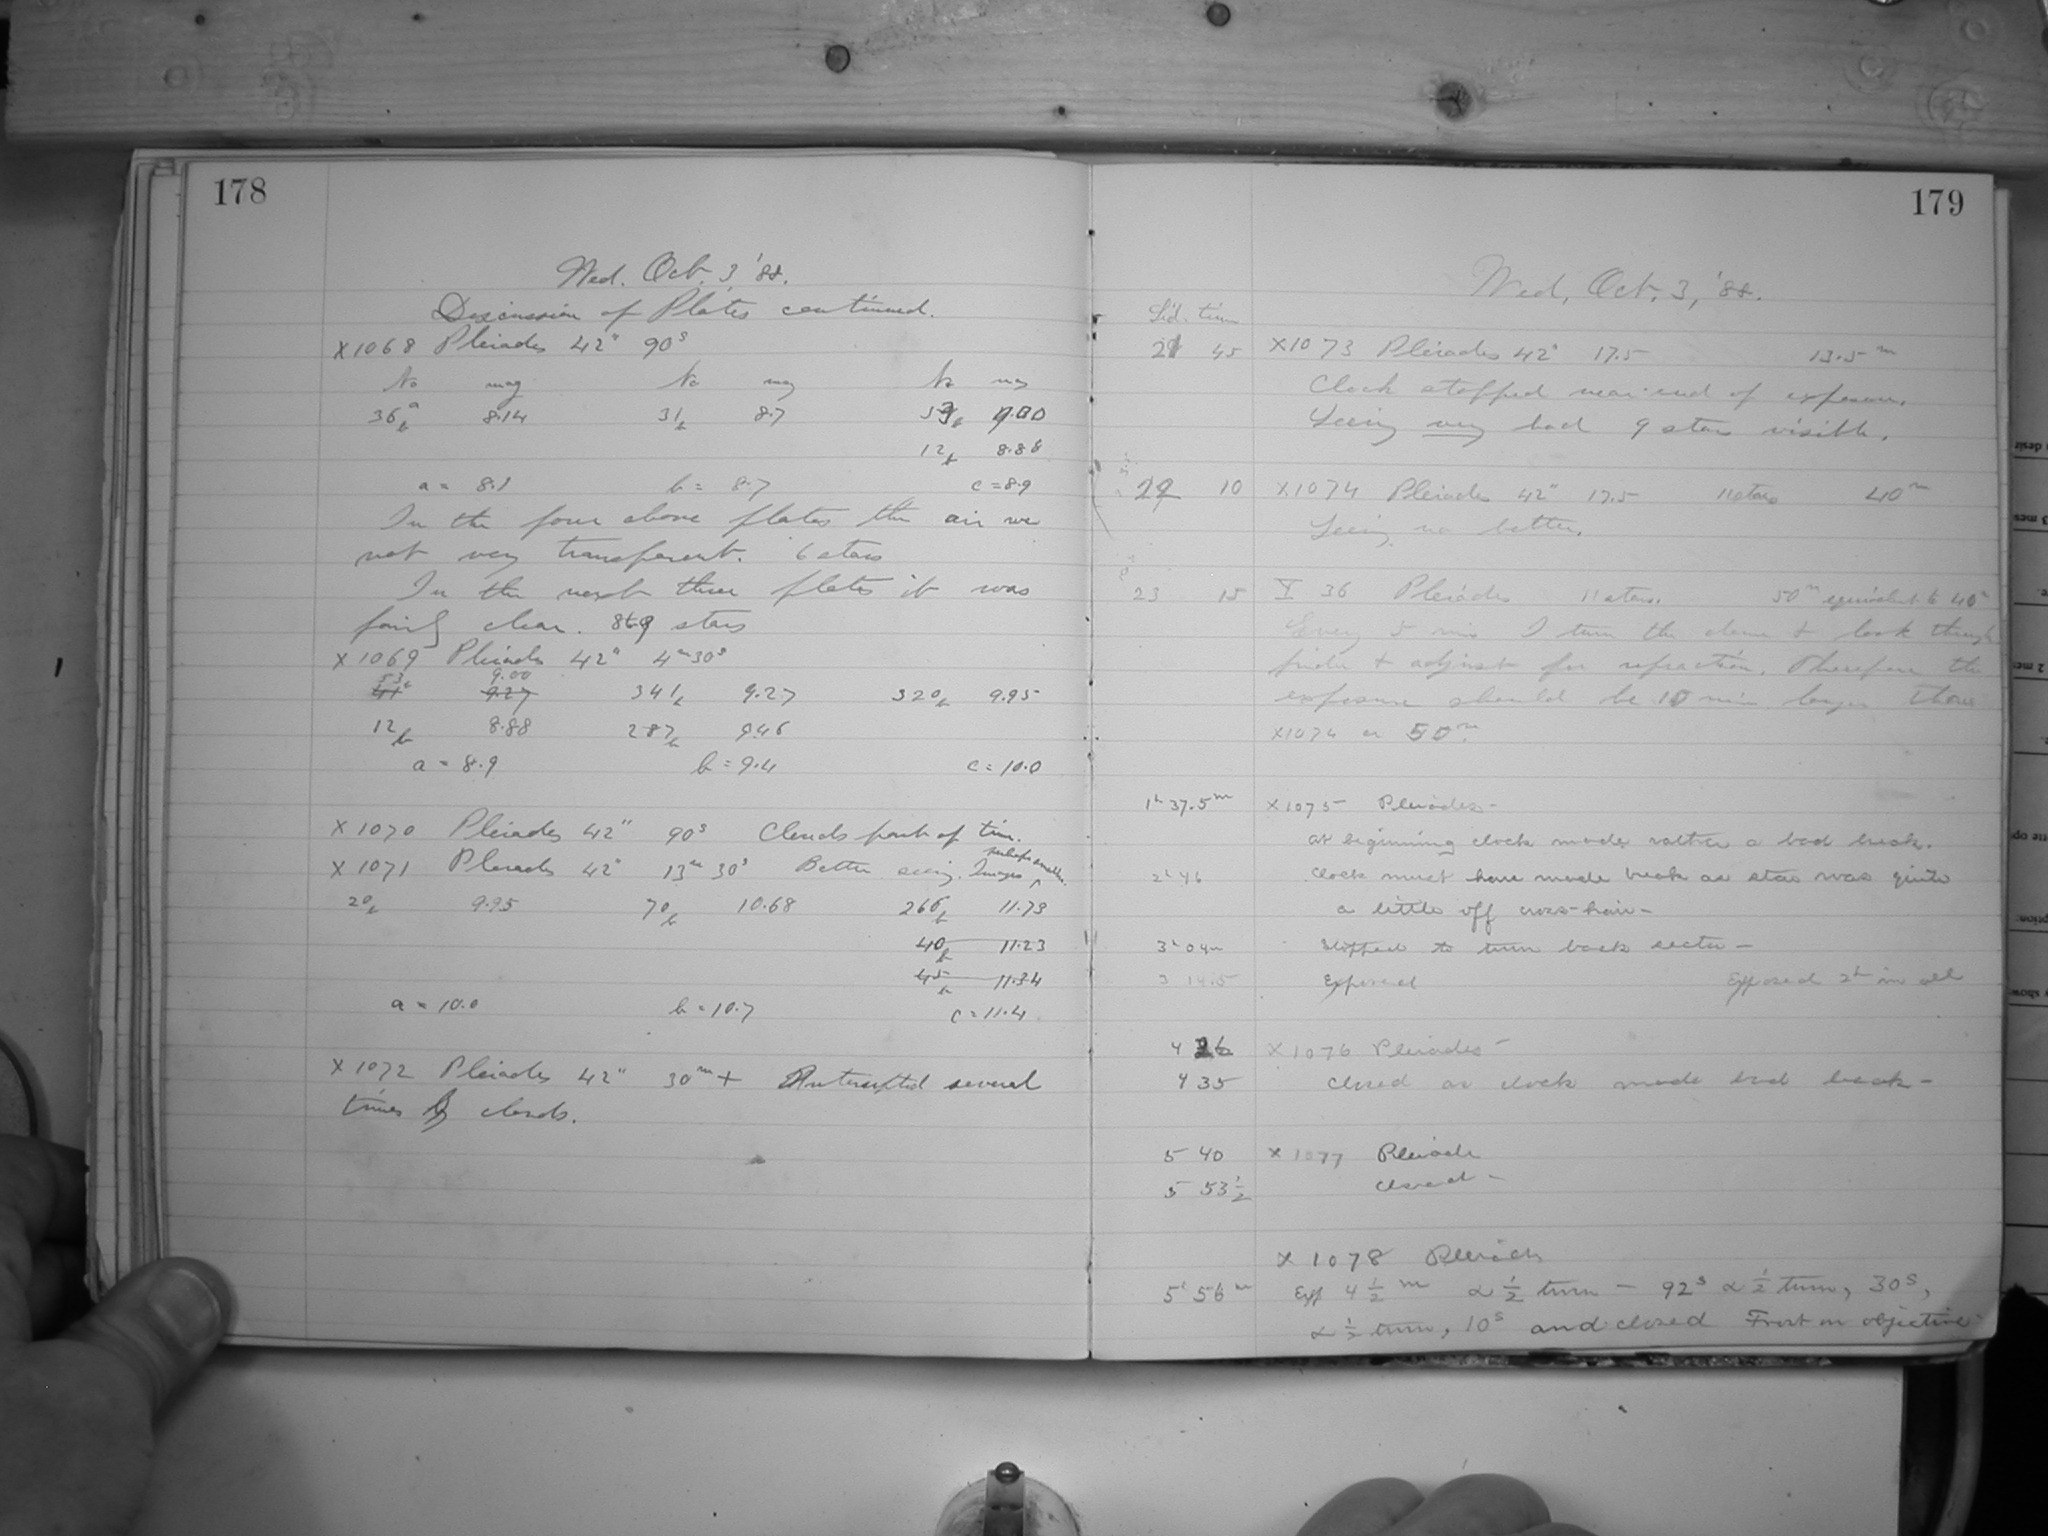 178
Wed. Oct. 3, '88.
Discussion of Plates continued.
X1068 Pleiades 42" 90s
No mag No mag No mag
36 b 8.14 31 b 8.7 9.00
12 b 8.88
a = 8.1 b = 8.7 c = 8.9
In the four above plates the air was
not very transparent. 6 stars
In the next three plates it was
fairly clear. 8 to 9 stars
X1069 Pleiades 42" 4m 30s
53 b 9.00
9.27 341 b 9.27 320 b 9.95
12 b 8.88 287 b 9.46
a = 8.9 b = 9.4 c = 10.0
X1070 Pleiades 42" 90s Clouds part of time.
X1071 Pleiades 42" 13m 30s Better seeing. Images perhaps smaller.
20 b 9.95 70 b 10.68 266 b 11.73
40 b 11.23
45 b 11.34
a = 10.0 b = 10.7 c = 11.4
X1072 Pleiades 42" 30m+ Interrupted several
times by clouds.
179
Wed, Oct. 3, '88.
Sid. time
21 45 X1073 Pleiades 42" 17.5 13.5m
Clock stopped near end of exposure.
Seeing very bad 9 stars visible.
10 X1074 Pleiades 42" 17.5 11 stars 40m
Seeing no better.
23 15 Y 36 Pleiades 11 stars. 50m equivalent to 40m
Every 5 min I turn the dome + look through
finder + adjust for refraction. Therefore the
exposure should be 10 min longer than
X1074 or 50m.
1h 37.5m X1075 Pleiades-
at beginning clock made rather a bad break.
2h 46 Clock must have made break as star was quite
a little off cross-hair-
3h 04m Stopped to turn back sector-
3 14.5 Exposed Exposed 2h in all
4 26 X1076 Pleiades-
4 35 Closed as clock made bad break-
5 40 X1077 Pleiades
5 53½ closed-
X1078 Pleiades
5h 56m Exp 4½m α ½ turn - 92s α ½ turn, 30s,
α ½ turn, 10s and closed Frost on objective-